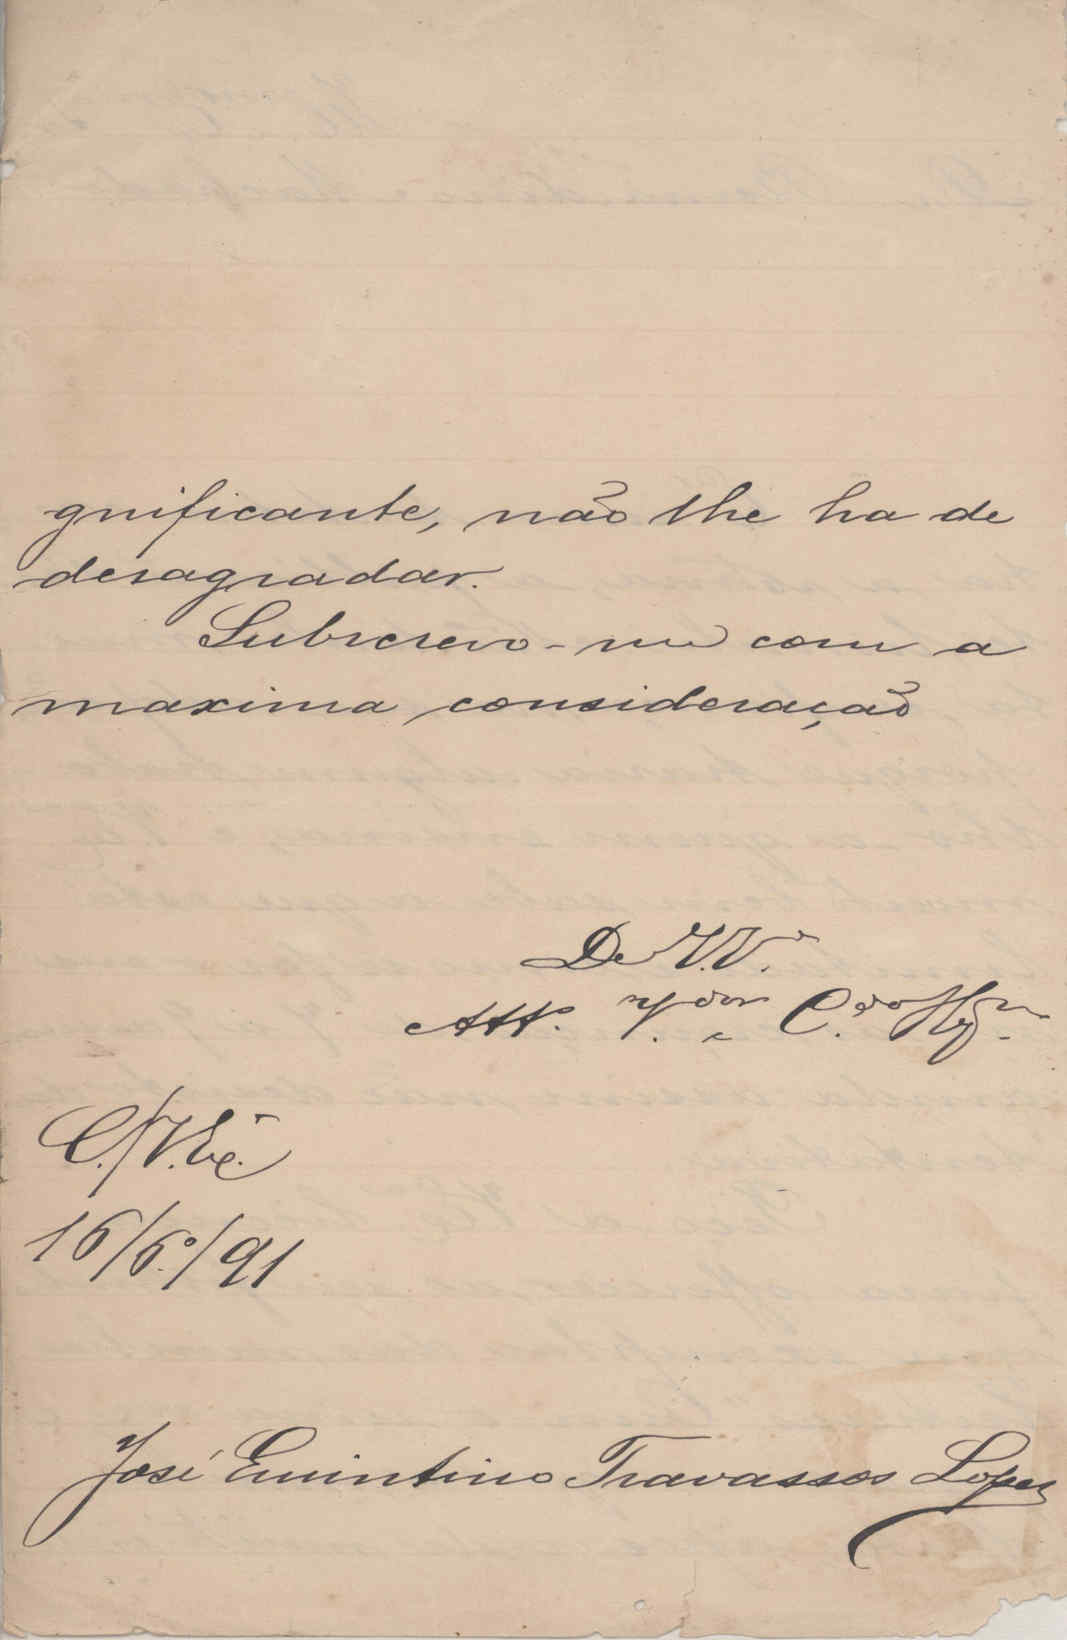 gnificante, não lhe ha de
desagradar.
Subscrevo-me com a
maxima consideração
De V.V.
Att.º V.dor e C.do
C./V.Ex.ª
16/6.º/91
José Quintino Travassos Lopes